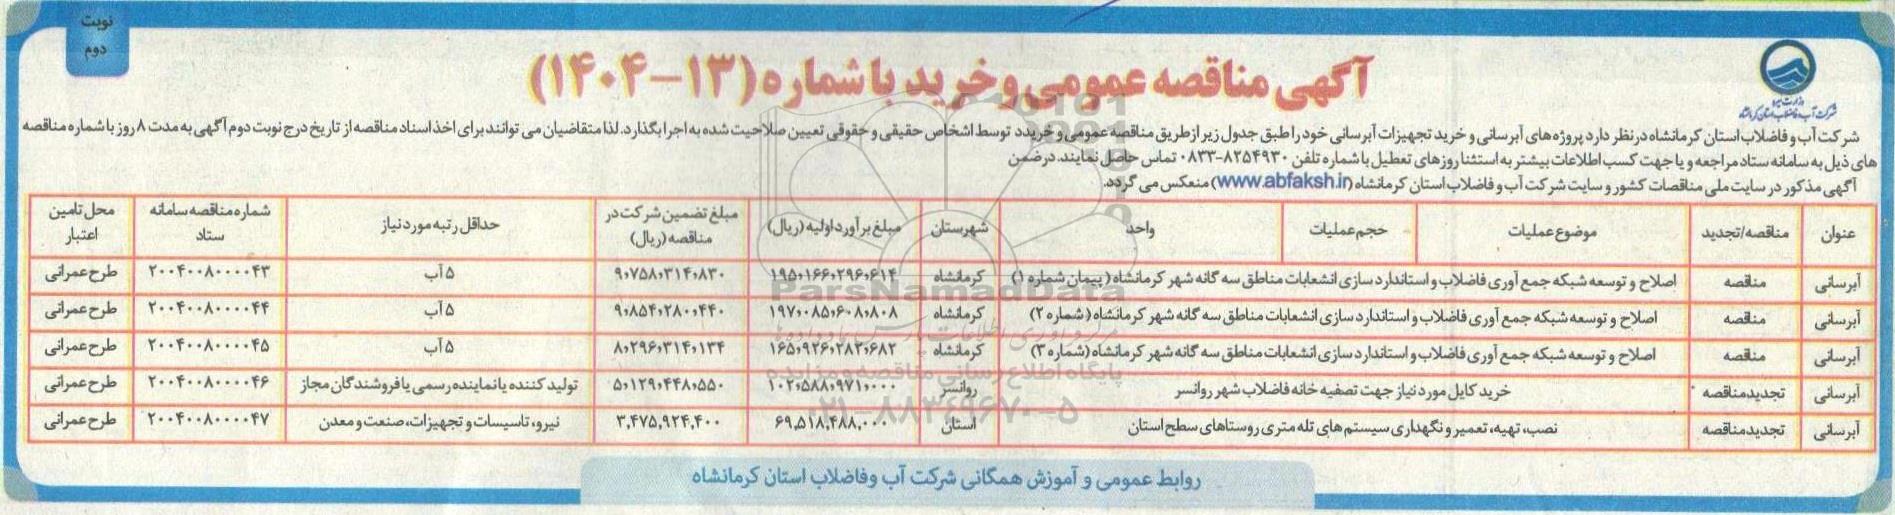 نوبت
دوم
وزارت نیرو
شرکت آب و فاضلاب استان کرمانشاه
آگهی مناقصه عمومی و خرید با شماره (۱۳-۱۴۰۴)
شرکت آب و فاضلاب استان کرمانشاه در نظر دارد پروژه های آبرسانی و خرید تجهیزات آبرسانی خود را طبق جدول زیر از طریق مناقصه عمومی و خریدد توسط اشخاص حقیقی و حقوقی تعیین صلاحیت شده به اجرا بگذارد. لذا متقاضیان می توانند برای اخذ اسناد مناقصه از تاریخ درج نوبت دوم آگهی به مدت ۸ روز با شماره مناقصه
های ذیل به سامانه ستاد مراجعه و یا جهت کسب اطلاعات بیشتر به استثنا روزهای تعطیل با شماره تلفن ۸۲۵۴۹۳۰-۰۸۳۳ تماس حاصل نمایند. در ضمن
آگهی مذکور در سایت ملی مناقصات کشور و سایت شرکت آب و فاضلاب استان کرمانشاه (www.abfaksh.ir) منعکس می گردد.
عنوان مناقصه/تجدید موضوع عملیات حجم عملیات واحد شهرستان مبلغ برآورد اولیه (ریال) مبلغ تضمین شرکت در مناقصه (ریال) حداقل رتبه مورد نیاز شماره مناقصه سامانه ستاد محل تامین اعتبار
آبرسانی مناقصه اصلاح و توسعه شبکه جمع آوری فاضلاب و استاندارد سازی انشعابات مناطق سه گانه شهر کرمانشاه ( پیمان شماره ۱) کرمانشاه ۱۹۵،۱۶۶،۲۹۶،۶۱۴ ۹،۷۵۸،۳۱۴،۸۳۰ ۵ آب ۲۰۰۴۰۰۸۰۰۰۰۴۳ طرح عمرانی
آبرسانی مناقصه اصلاح و توسعه شبکه جمع آوری فاضلاب و استاندارد سازی انشعابات مناطق سه گانه شهر کرمانشاه ( شماره ۲) کرمانشاه ۱۹۷،۰۸۵،۶۰۸،۸۰۸ ۹،۸۵۴،۲۸۰،۴۴۰ ۵ آب ۲۰۰۴۰۰۸۰۰۰۰۴۴ طرح عمرانی
آبرسانی مناقصه اصلاح و توسعه شبکه جمع آوری فاضلاب و استاندارد سازی انشعابات مناطق سه گانه شهر کرمانشاه (شماره ۳) کرمانشاه ۱۶۵،۹۲۶،۲۸۲،۶۸۲ ۸،۲۹۶،۳۱۴،۱۳۴ ۵ آب ۲۰۰۴۰۰۸۰۰۰۰۴۵ طرح عمرانی
آبرسانی تجدید مناقصه خرید کابل مورد نیاز جهت تصفیه خانه فاضلاب شهر روانسر روانسر ۱۰۲،۵۸۸،۹۷۱،۰۰۰ ۵،۱۲۹،۴۴۸،۵۵۰ تولید کننده یا نماینده رسمی یا فروشندگان مجاز ۲۰۰۴۰۰۸۰۰۰۰۴۶ طرح عمرانی
آبرسانی تجدید مناقصه نصب، تهیه، تعمیر و نگهداری سیستم های تله متری روستاهای سطح استان استان ۶۹,۵۱۸,۴۸۸,۰۰۰ ۳,۴۷۵,۹۲۴,۴۰۰ نیرو، تاسیسات و تجهیزات، صنعت و معدن ۲۰۰۴۰۰۸۰۰۰۰۴۷ طرح عمرانی
ParsNamadData
پایگاه اطلاع رسانی مناقصه و مزایده
۰۲۱-۸۸۳۴۹۶۷۰-۵
روابط عمومی و آموزش همگانی شرکت آب و فاضلاب استان کرمانشاه